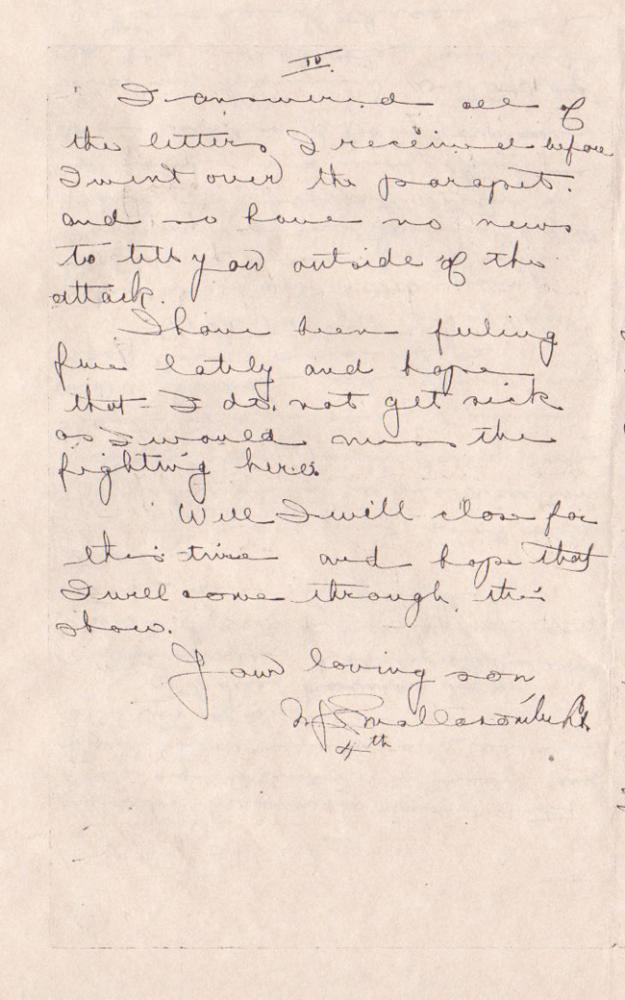 IV.
I answered all of
the letters I received before
I went over the parapet.
and so have no news
to tell you outside of the
attack.
I have been feeling
fine lately and hope
that I do not get sick
as I would miss the
fighting here.
Well I will close for
this time and hope that
I will come through this
show.
Your loving son
4th